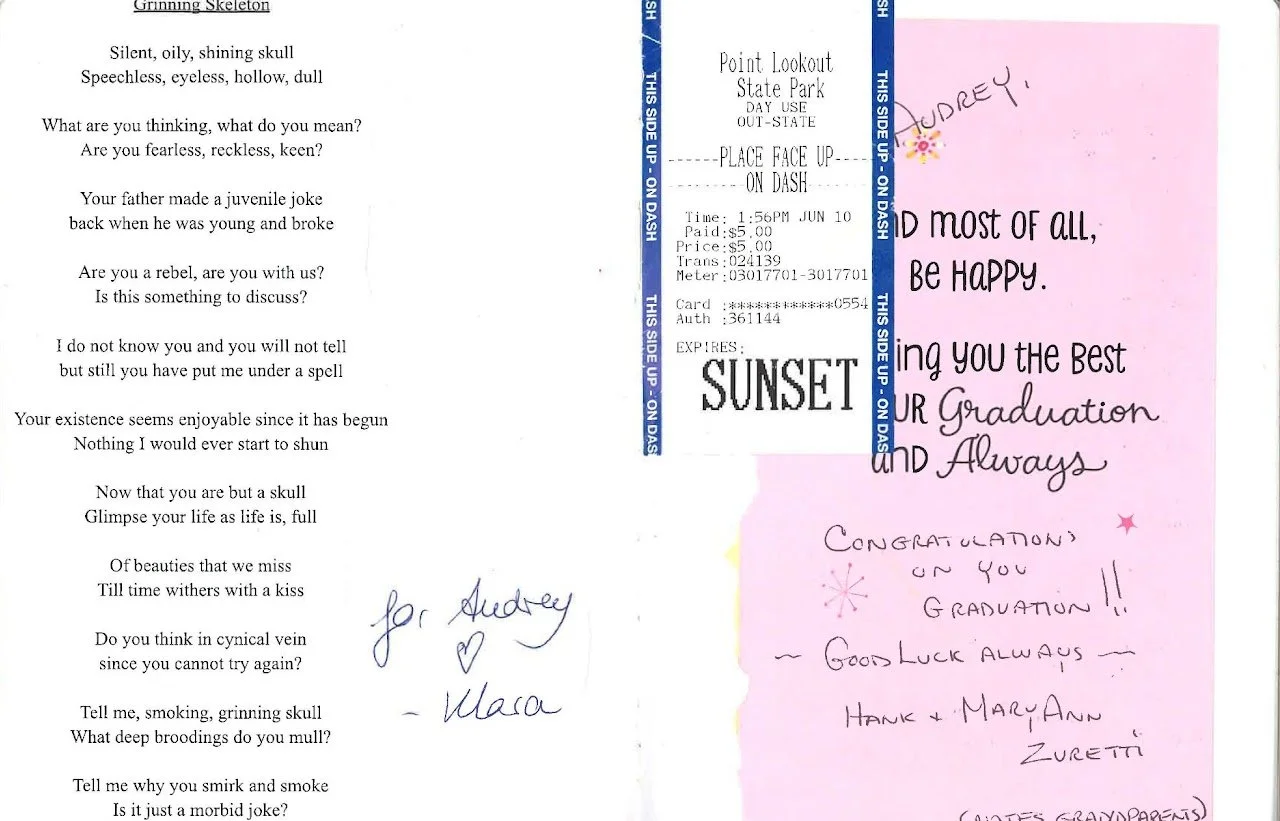 Grinning Skeleton
Silent, oily, shining skull
Speechless, eyeless, hollow, dull
What are you thinking, what do you mean?
Are you fearless, reckless, keen?
Your father made a juvenile joke
back when he was young and broke
Are you a rebel, are you with us?
Is this something to discuss?
I do not know you and you will not tell
but still you have put me under a spell
Your existence seems enjoyable since it has begun
Nothing I would ever start to shun
Now that you are but a skull
Glimpse your life as life is, full
Of beauties that we miss
Till time withers with a kiss
Do you think in cynical vein
since you cannot try again?
Tell me, smoking, grinning skull
What deep broodings do you mull?
Tell me why you smirk and smoke
Is it just a morbid joke?
for Audrey
♡
- Klara
SH
THIS SIDE UP - ON DASH
THIS SIDE UP - ON DAS
Point Lookout
State Park
DAY USE
OUT-STATE
------PLACE FACE UP-----
--------ON DASH-------
Time: 1:56PM JUN 10
Paid:$5.00
Price:$5.00
Trans:024139
Meter:03017701-3017701
Card :************0554
Auth :361144
EXPIRES:
SUNSET
SH
THIS SIDE UP - ON DASH
THIS SIDE UP - ON DAS
AUDREY,
ND most of all,
Be Happy.
ing you the Best
UR Graduation
and Always
CONGRATULATIONS
ON YOU
GRADUATION!!
~ GOOD LUCK ALWAYS ~
HANK + MARYANN
ZURETTI
GRANDPARENTS)